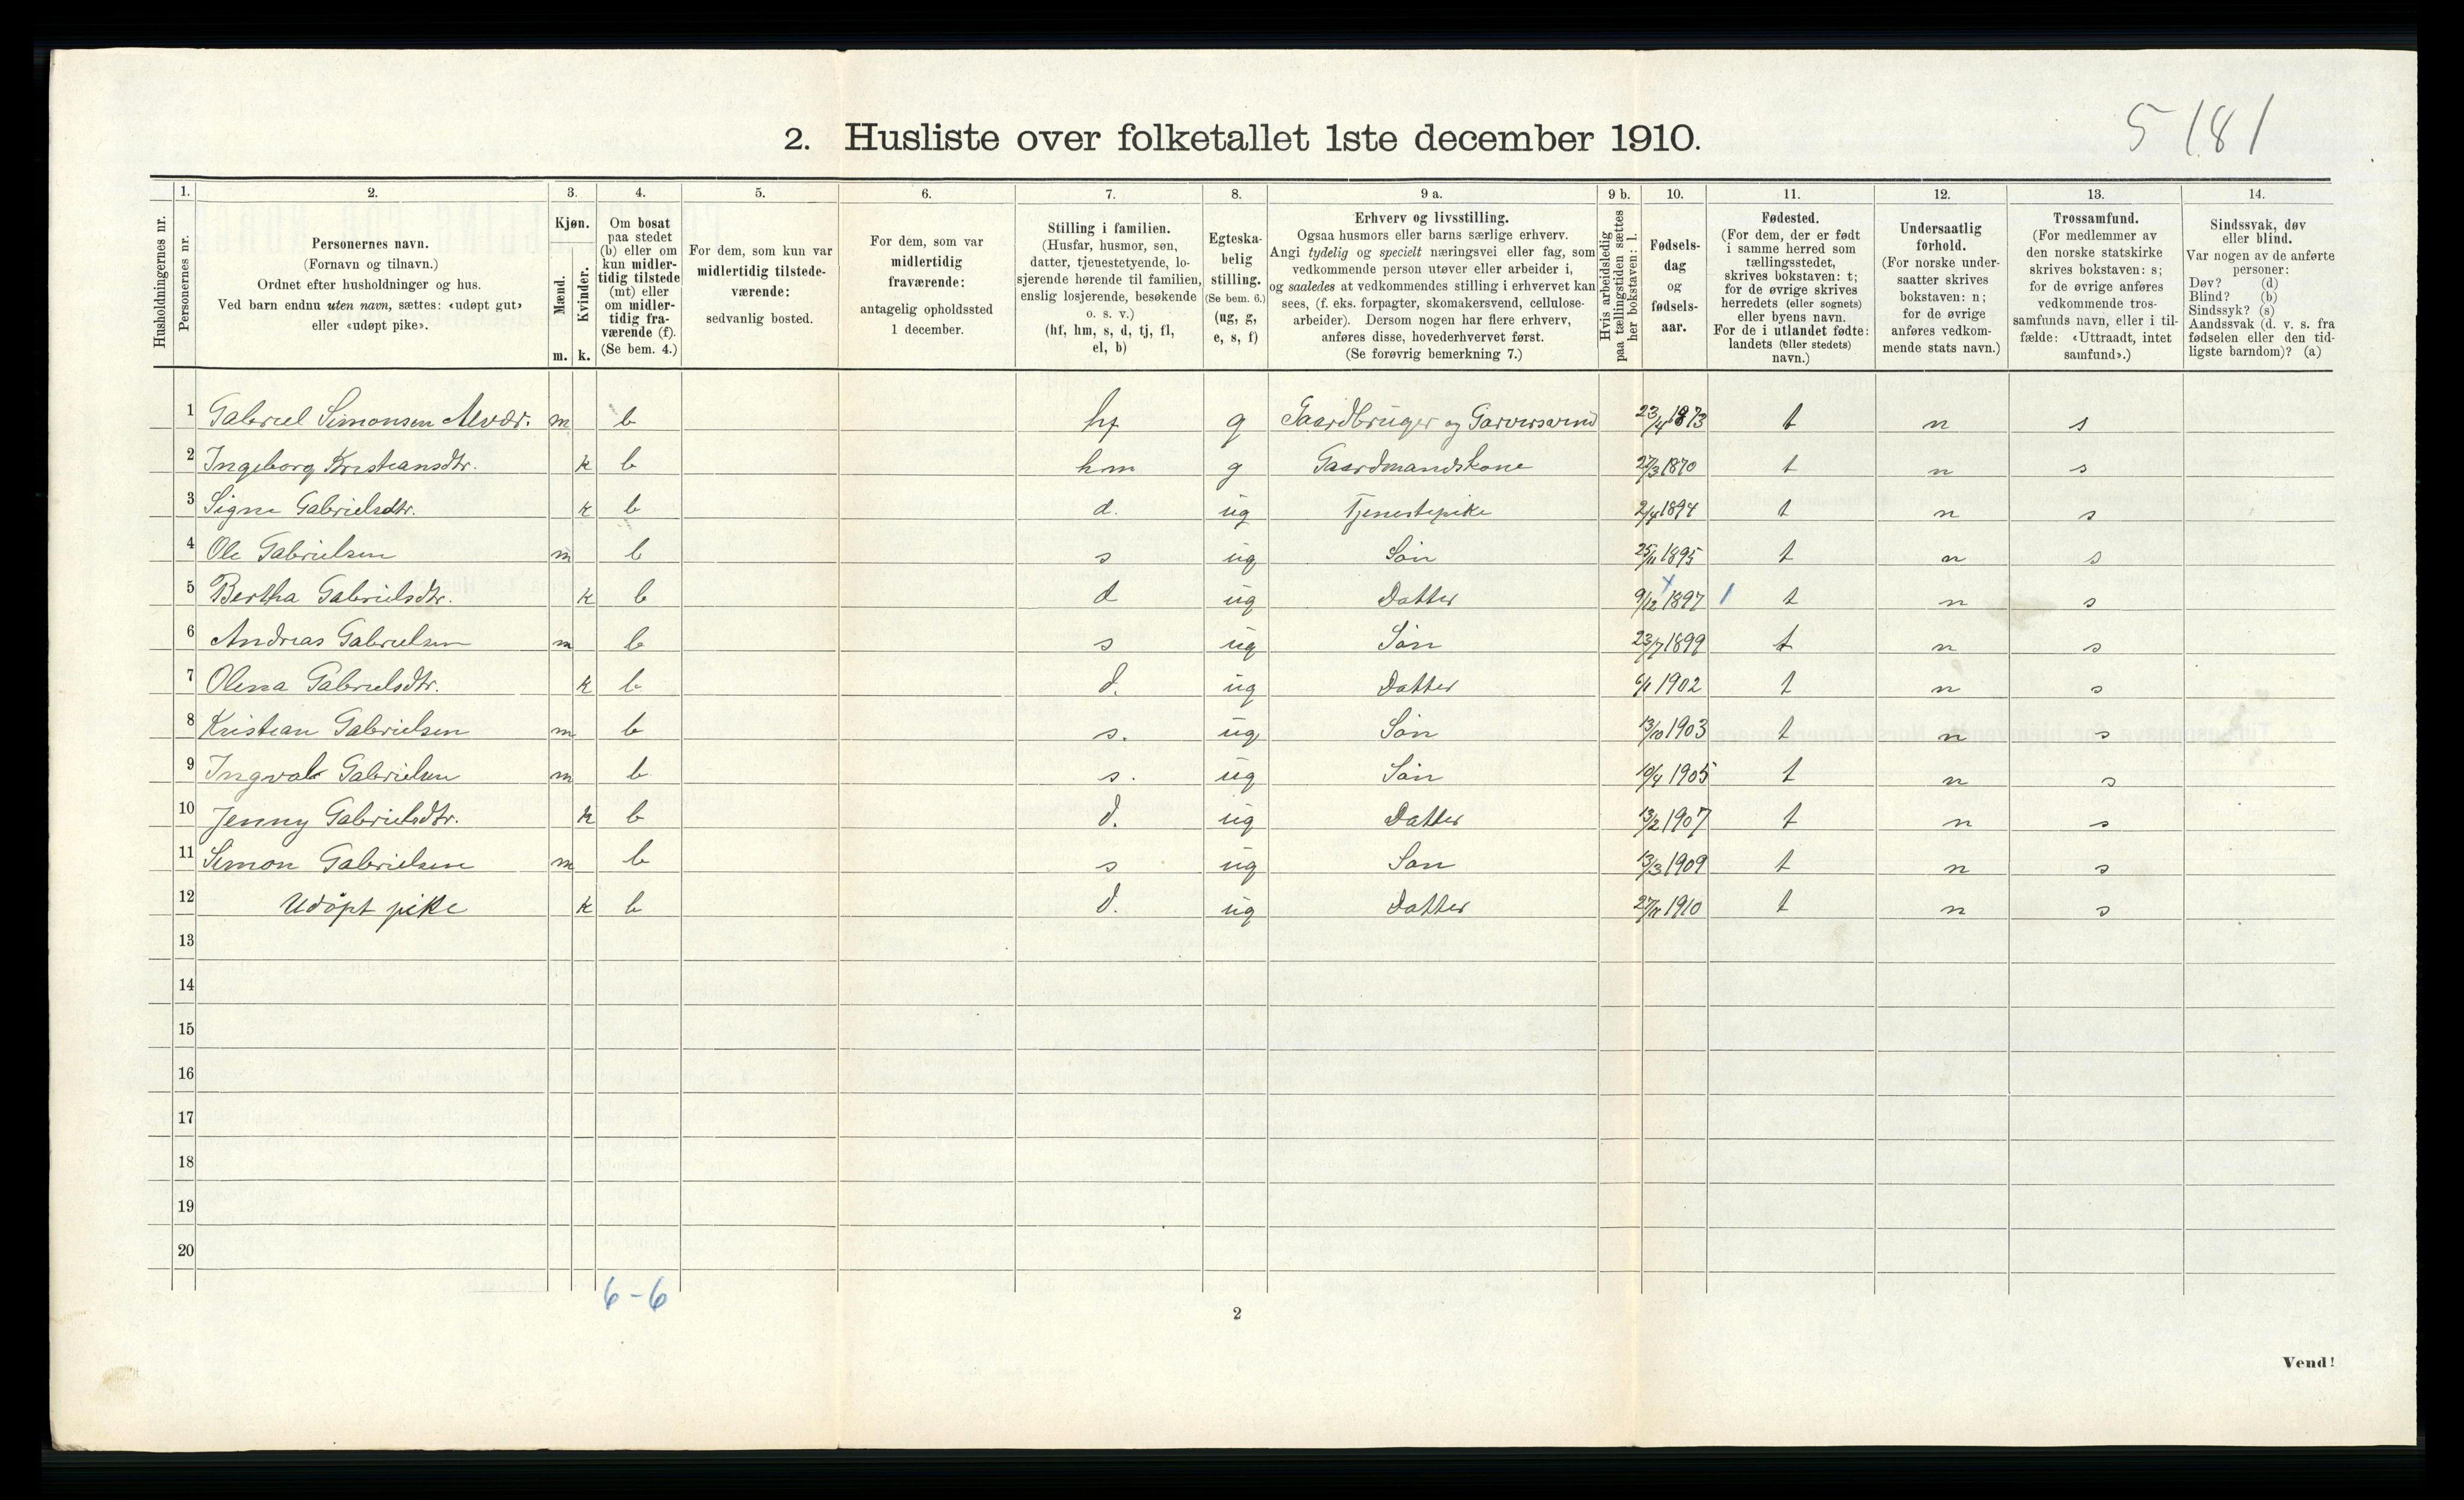 5181
2. Husliste over folketallet 1ste december 1910.
Husholdningernes nr.
1.
Personernes nr.
2.
Personernes navn.
(Fornavn og tilnavn.)
Ordnet efter husholdninger og hus.
Ved barn endnu uten navn, sættes: «udøpt gut»
eller «udøpt pike».
3.
Kjøn.
Mænd.
m.
Kvinder.
k.
4.
Om bosat
paa stedet
(b) eller om
kun midler-
tidig tilstede
(mt) eller
om midler-
tidig fra-
værende (f).
(Se bem. 4.)
5.
For dem, som kun var
midlertidig tilstede-
værende:
sedvanlig bosted.
6.
For dem, som var
midlertidig
fraværende:
antagelig opholdssted
1 december.
7.
Stilling i familien.
(Husfar, husmor, søn,
datter, tjenestetyende, lo-
sjerende hørende til familien,
enslig losjerende, besøkende
o. s. v.)
(hf, hm, s, d, tj, fl,
el, b)
8.
Egteska-
belig
stilling.
(Se bem. 6.)
(ug, g,
e, s, f)
9 a.
Erhverv og livsstilling.
Ogsaa husmors eller barns særlige erhverv.
Angi tydelig og specielt næringsvei eller fag, som
vedkommende person utøver eller arbeider i,
og saaledes at vedkommendes stilling i erhvervet kan
sees, (f. eks. forpagter, skomakersvend, cellulose-
arbeider). Dersom nogen har flere erhverv,
anføres disse, hovederhvervet først.
(Se forøvrig bemerkning 7.)
9 b.
Hvis arbeidsledig
paa tællingstiden sættes
her bokstaven: l.
10.
Fødsels-
dag
og
fødsels-
aar.
11.
Fødested.
(For dem, der er født
i samme herred som
tællingsstedet,
skrives bokstaven: t;
for de øvrige skrives
herredets (eller sognets)
eller byens navn.
For de i utlandet fødte:
landets (eller stedets)
navn.)
12.
Undersaatlig
forhold.
(For norske under-
saatter skrives
bokstaven: n;
for de øvrige
anføres vedkom-
mende stats navn.)
13.
Trossamfund.
(For medlemmer av
den norske statskirke
skrives bokstaven: s;
for de øvrige anføres
vedkommende tros-
samfunds navn, eller i til-
fælde: «Uttraadt, intet
samfund».)
14.
Sindssvak, døv
eller blind.
Var nogen av de anførte
personer:
Døv? (d)
Blind? (b)
Sindssyk? (s)
Aandssvak (d. v. s. fra
fødselen eller den tid-
ligste barndom)? (a)
1 Gabriel Simonsen m b hf g Gaardbruger og 23/4 1873 t n s
2 Ingeborg Kristiansdtr. k b hm g Gaardmandskone 27/3 1870 t n s
3 Signe Gabrielsdtr. k b d. ug Tjenestepike 2/4 1894 t n s
4 Ole Gabrielsen m b s ug Søn 25/11 1895 t n s
5 Bertha Gabrielsdtr. k b d ug Datter 9/12 1897 1 t n s
6 Andreas Gabrielsen m b s ug Søn 23/7 1899 t n s
7 Olena Gabrielsdtr. k b d. ug Datter 6/1 1902 t n s
8 Kristian Gabrielsen m b s. ug Søn 13/10 1903 t n s
9 Ingvald Gabrielsen m b s. ug Søn 10/4 1905 t n s
10 Jenny Gabrielsdtr. k b d. ug Datter 13/2 1907 t n s
11 Simon Gabrielsen m b s ug Søn 13/3 1909 t n s
12 Udøpt pike k b d. ug Datter 27/11 1910 t n s
13
14
15
16
17
18
19
20
6-6
2
Vend!